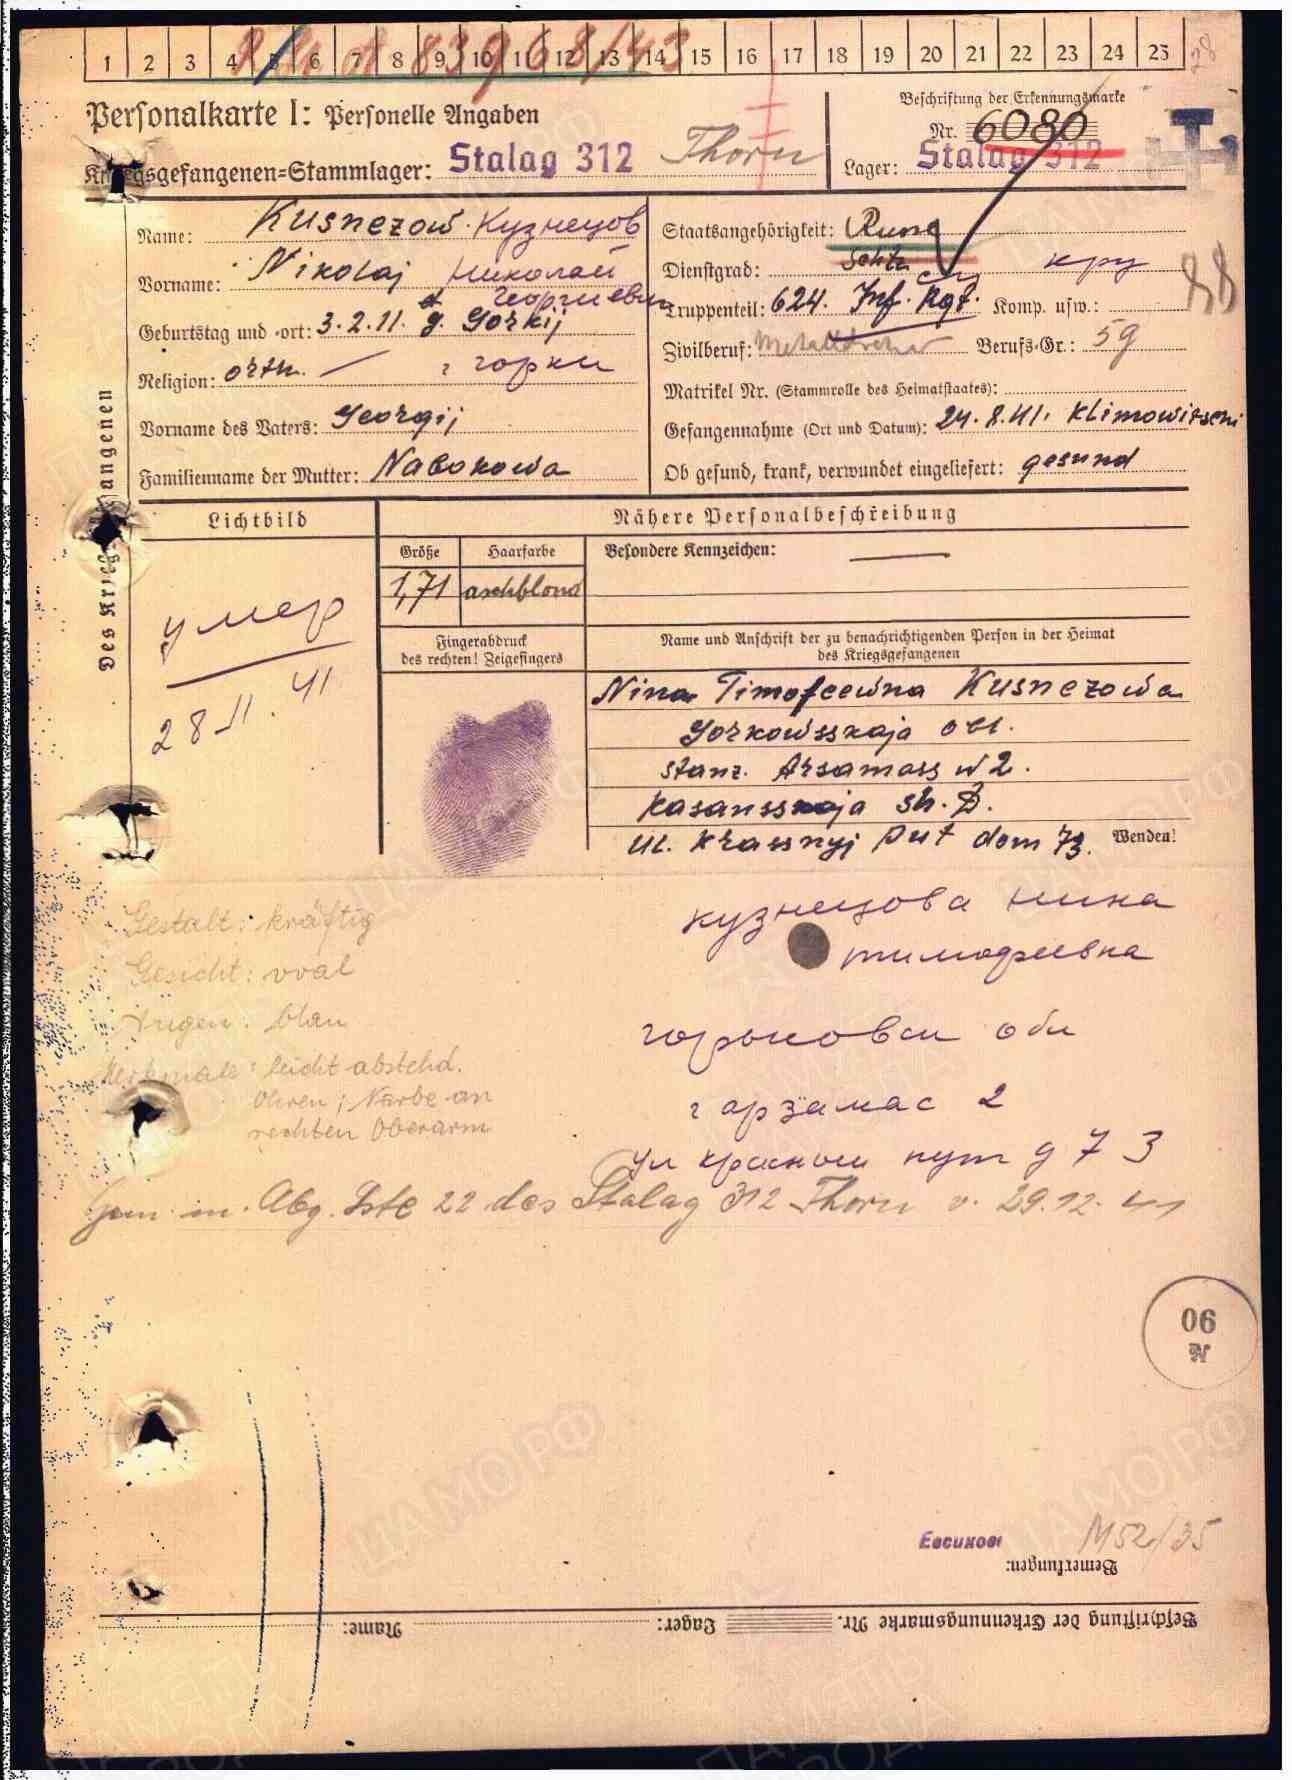 1 2 3 4 5 6 7 8 9 10 11 12 13 14 15 16 17 18 19 20 21 22 23 24 25
83968/43
28
Personalkarte I: Personelle Angaben
Beschriftung der Erkennungsmarke
Nr. 6080
Kriegsgefangenen-Stammlager: Stalag 312 Thorn
Lager: Stalag 312
Des Kriegsgefangenen
Name: Kusnezow Кузнецов
Vorname: Nikolaj Николай
Георгиевич
Geburtstag und -ort: 3.2.11. g. Gorkij
Religion: orth. — г горки
Vorname des Vaters: Georgij
Familienname der Mutter: Nabokowa
Staatsangehörigkeit: Russe
Dienstgrad: Schtz
Truppenteil: 624. Inf. Rgt. Komp. usw.:
Zivilberuf: Metalldreher Berufs-Gr.: 59
Matrikel Nr. (Stammrolle des Heimatstaates):
Gefangennahme (Ort und Datum): 24.8.41. Klimowitschi
Ob gesund, krank, verwundet eingeliefert: gesund
Lichtbild
умер
28 11. 41
Nähere Personalbeschreibung
Größe Haarfarbe Besondere Kennzeichen: —
1,71 aschblond
Fingerabdruck
des rechten! Zeigefingers
Name und Anschrift der zu benachrichtigenden Person in der Heimat
des Kriegsgefangenen
Nina Timofeewna Kusnezowa
Gorkowsskaja obl.
stanz. Arsamass N 2.
Kasansskaja sh. D.
ul. Krassnyj Put dom 73. Wenden!
Кузнецова Нина
тимофеевна
горьковск обл
г арзамас 2
ул красный пут д 73
Gestalt: kräftig
Gesicht: oval
Augen: blau
Merkmale: leicht abstehd.
Ohren; Narbe an
rechten Oberarm
Gem. m. Abg. Liste 22 des Stalag 312 Thorn v. 29.12.41
№ 90
Евсиков
M52/35
Bemerkungen:
Beschriftung der Erkennungsmarke Nr. Lager: Name: